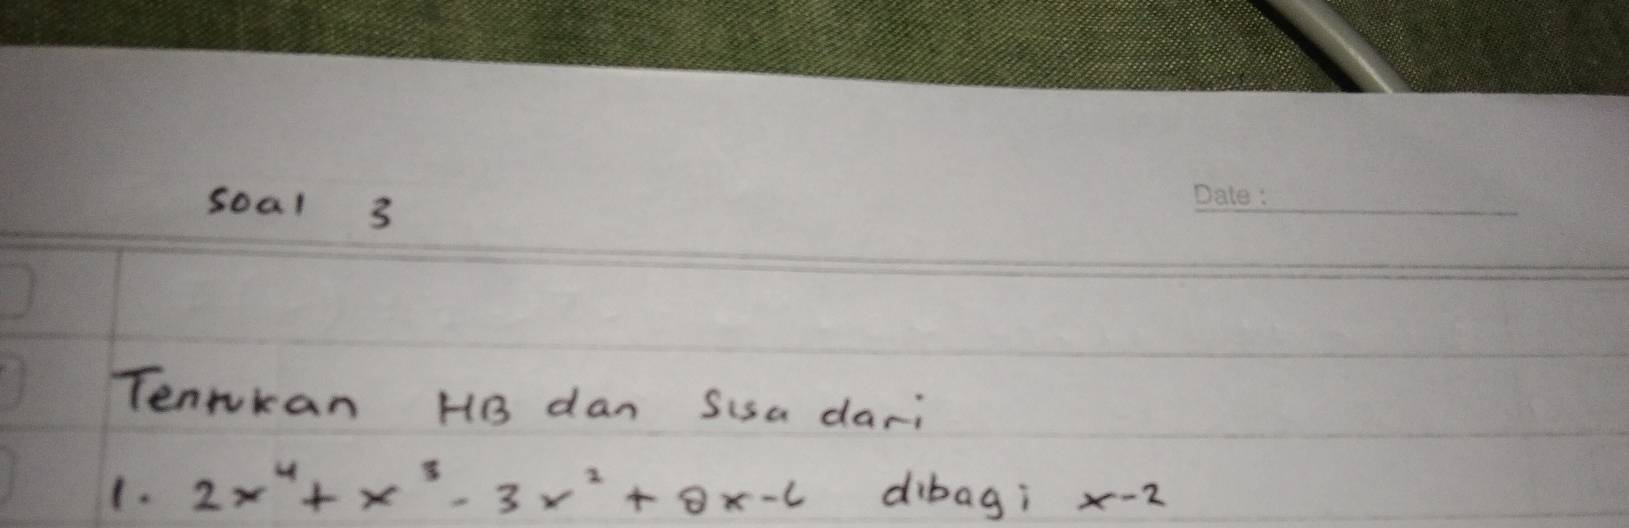 soal 3
Date :
Tentukan HB dan Sisa dari
1. 2x⁴ + x³ - 3x² + 8x - 6 dibagi x - 2